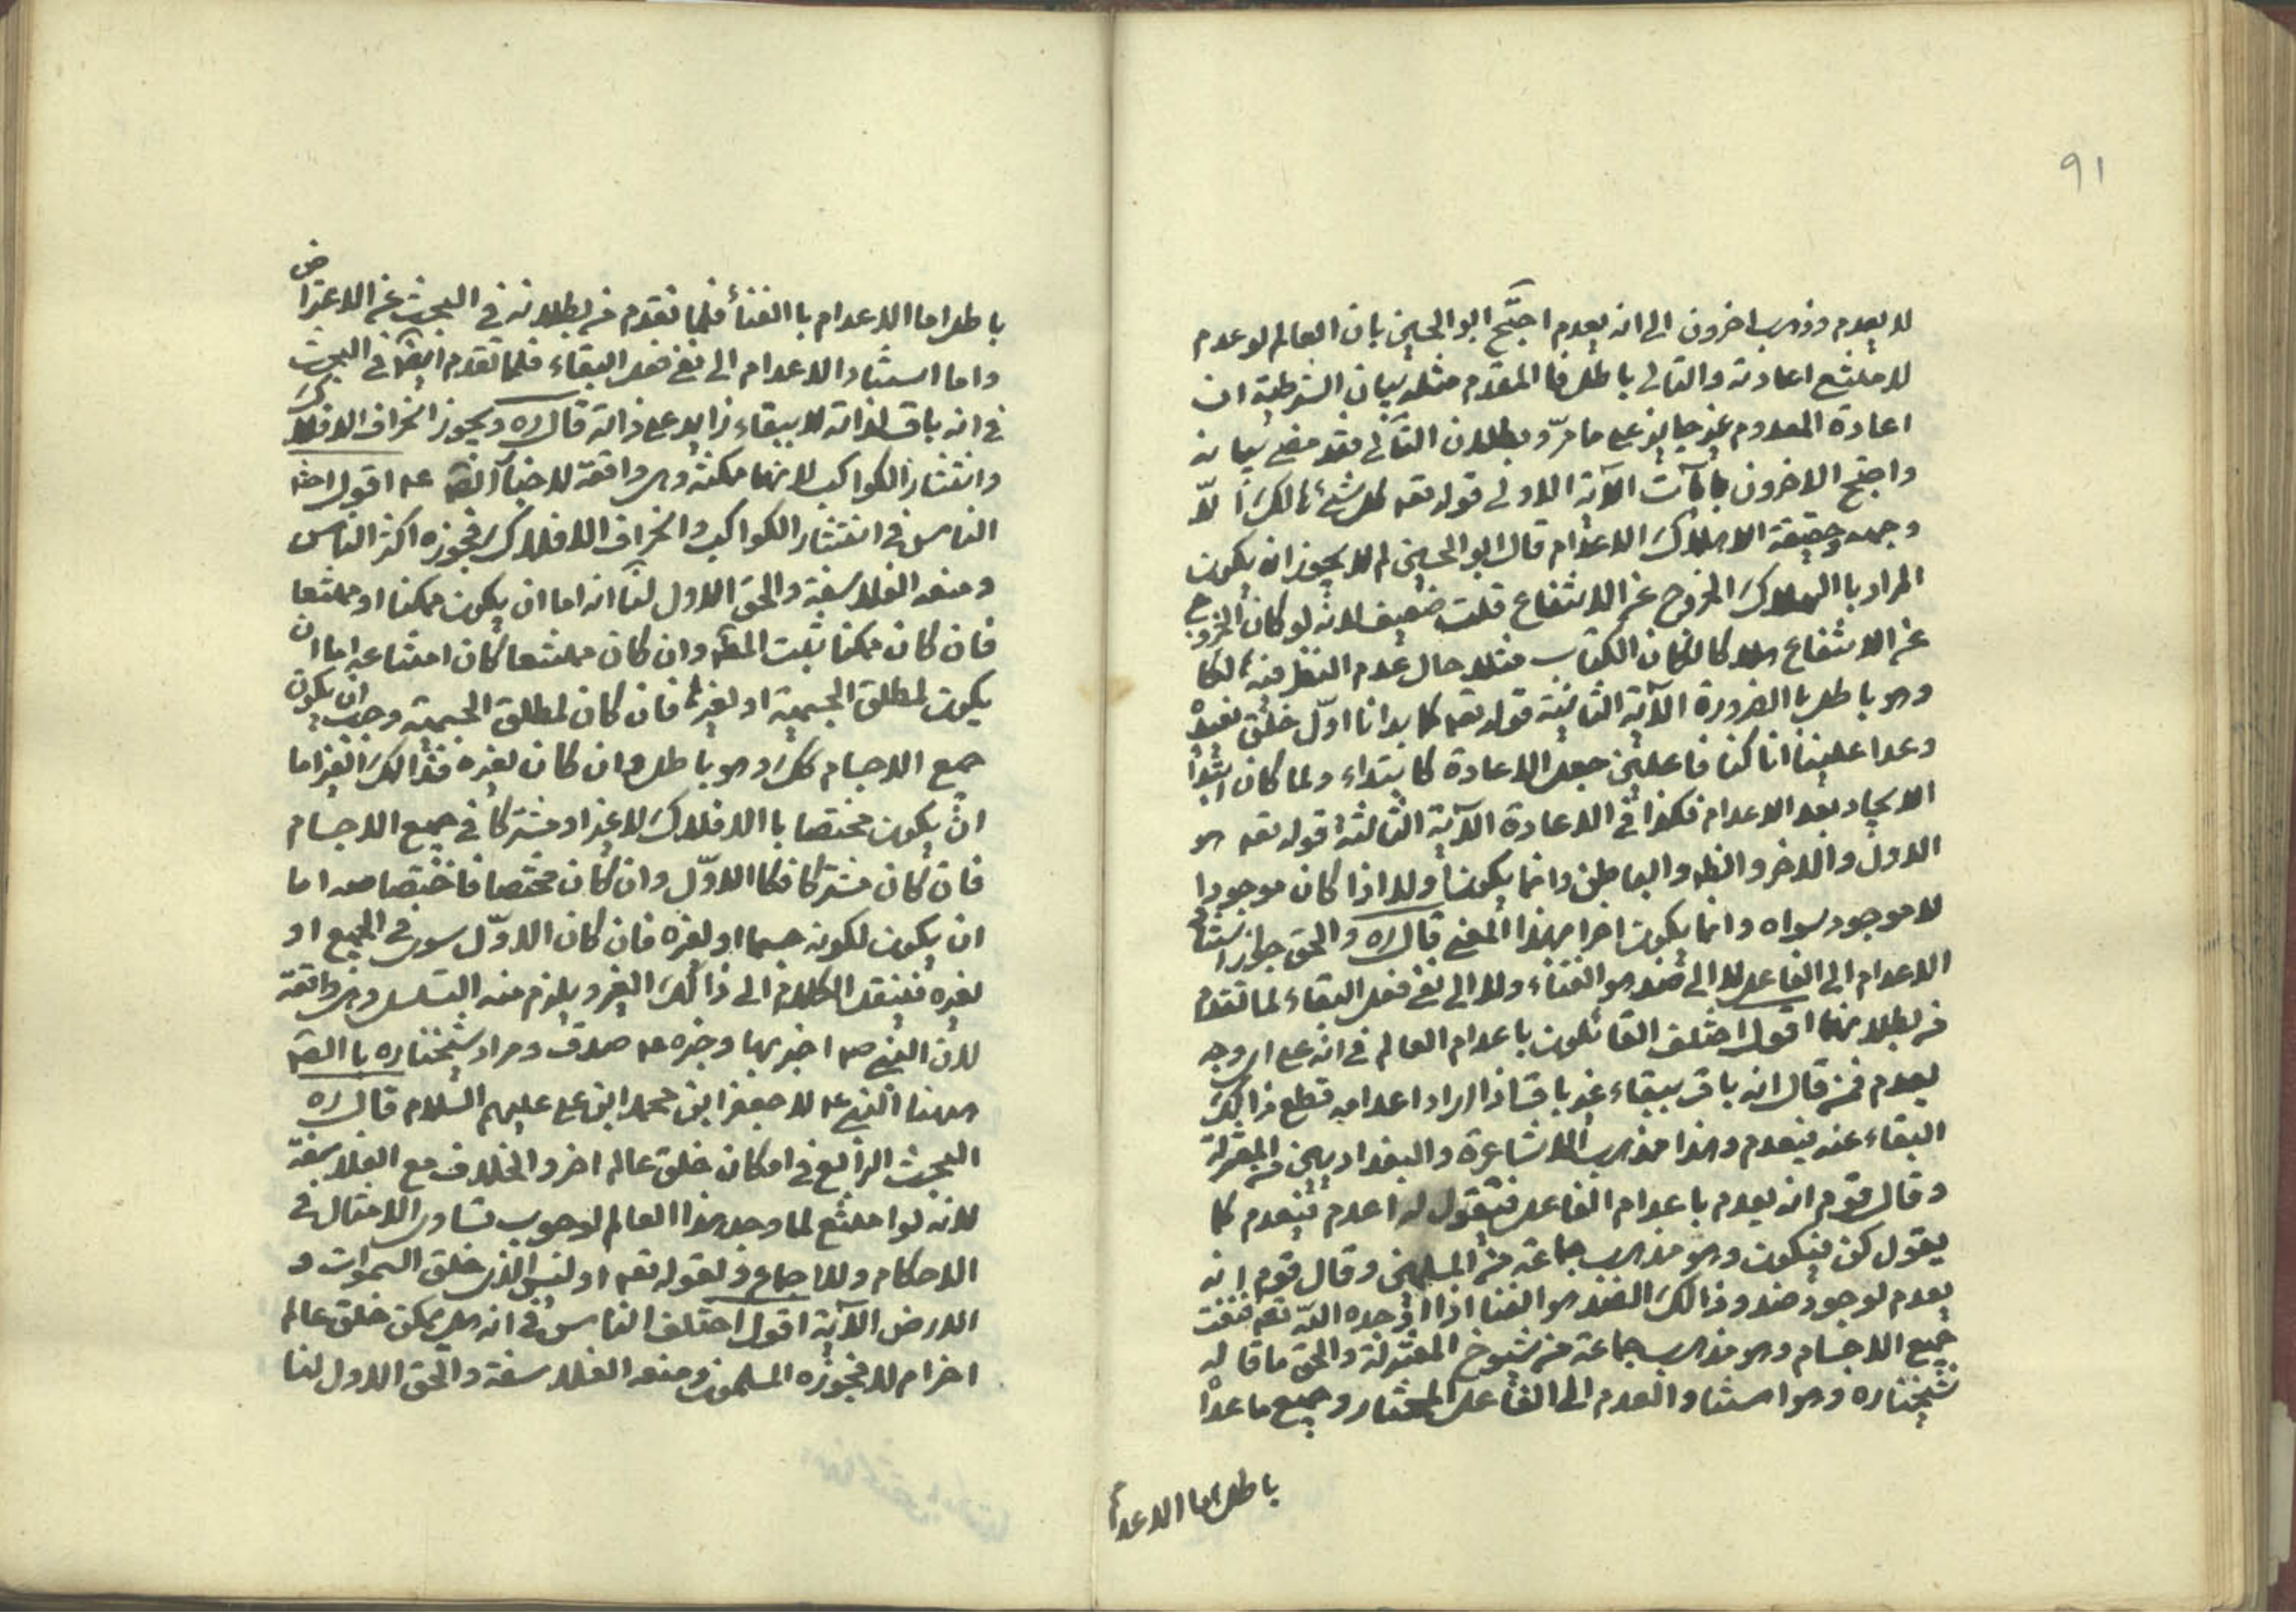 91
لا يعدم وذهب اخرون الى انه يعدم احتج ابو الحسين بان العالم لو عدم
لامتنع اعادته والتالى باطل فا المقدم مثله بيان الشرطية ان
اعادة المعدوم غير جايز على ما مرّ وبطلان التالى فقد مضى بيانه
واحتج الاخرون بايآت الآية الاولى قوله تعه كل شئ هالك الّا
وجهه وحقيقة الاهلاك الاعدام قال ابو الحسين لم لا يجوز ان يكون
المراد با الهلاك الخروج عن الانتفاع قلت ضعيف لانه لو كان الخروج
عن الانتفاع هلاكا لكان الكتاب مثلا حال عدم النظر فيه هالكا
وهو باطل با الضرورة الآية الثانية قوله تعه كما بدانا اوّل خلق نعيده
وعدا علينا انا كنا فاعلين جعل الاعادة كا بتداء ولما كان ابتداء
الايجاد بعد الاعدام فكذا فى الاعادة الآية الثالثة قوله تعه هو
الاول والاخر والظه والباطن وانما يكون اولا اذا كان موجودا
لا موجود سواه وانما يكون اخرا بهذا المعنى قال ره والحق جواز استناد
الاعدام الى الفاعل لا الى ضد هو الفناء ولا الى نفى فعل البقاء لما تقدم
من بطلانهما اقول اختلف القائلون باعدام العالم فى انه على اى وجه
يعدم فمن قال انه باق ببقاء غير باق اذا اراد اعدامه قطع ذالك
البقاء عنه فيعدم وهذا مذهب الاشاعرة والبغداديين من المعتزلة
وقال قوم انه يعدم باعدام الفاعل فيقول له اعدم فيعدم كما
يقول كن فيكون وهو مذهب جماعة من المسلمين وقال قوم انه
يعدم لوجود ضد وذالك الضد هو الفنا اذا اوجده الله تعه فنيت
جميع الاجسام وهو مذهب جماعة من شيوخ المعتزلة والحق ما قاله
شيخنا ره وهو استناد العدم الى الفاعل المختار وجميع ما عدا
باطل اما الاعدام
باطل اما الاعدام با الفنأ فلما تقدم من بطلانه فى البحث عن الاعتراض
واما استناد الاعدام الى نفى فعل البقاء فلما تقدم ايضا فى البحث
فى انه باق لذاته لا ببقاء زايد على ذاته قال ره ويجوز انخراق الافلاك
وانتثار الكواكب لانها ممكنة وهى واقعة لاخبآر الصه عه اقول اختلف
الناس فى انتثار الكواكب وانخراق الافلاك فجوزه اكثر الناس
ومنعه الفلاسفة والحق الاول لنا انه اما ان يكون ممكنا او ممتنعا
فان كان ممكنا ثبت المط وان كان ممتنعا كان امتناعه اما ان
يكون لمطلق الجسمية او لغيره فان كان لمطلق الجسمية وجب ان يكون
جميع الاجسام كك وهو باطل وان كان لغيره فذالك الغير اما
ان يكون مختصا با الافلاك لا غير او مشتركا فى جميع الاجسام
فان كان مشتركا فكا الاوّل وان كان مختصا فاختصاصه اما
ان يكون لكونه جسما او لغيره فان كان الاوّل سوى فى الجميع او
لغيره فننقل الكلام الى ذالك الغير ويلزم منه التسلسل وهى واقعة
لان النبى صه اخبر بها وخبره عه صدق ومراد شيخنا ره با الصه
ههنا النبى عه لا جعفر ابن محمد ابن على عليهم السلام قال ره
البحث الرابع فى امكان خلق عالم اخر والخلاف مع الفلاسفة
لانه لو امتنع لما وجد هذا العالم لوجوب تساوى الامثال فى
الاحكام وللاجماع ولقوله تعه او ليس الذى خلق السموات و
الارض الآية اقول اختلف الناس فى انه هل يمكن خلق عالم
اخر ام لا فجوزه المسلمون ومنعه الفلاسفة والحق الاول لنا